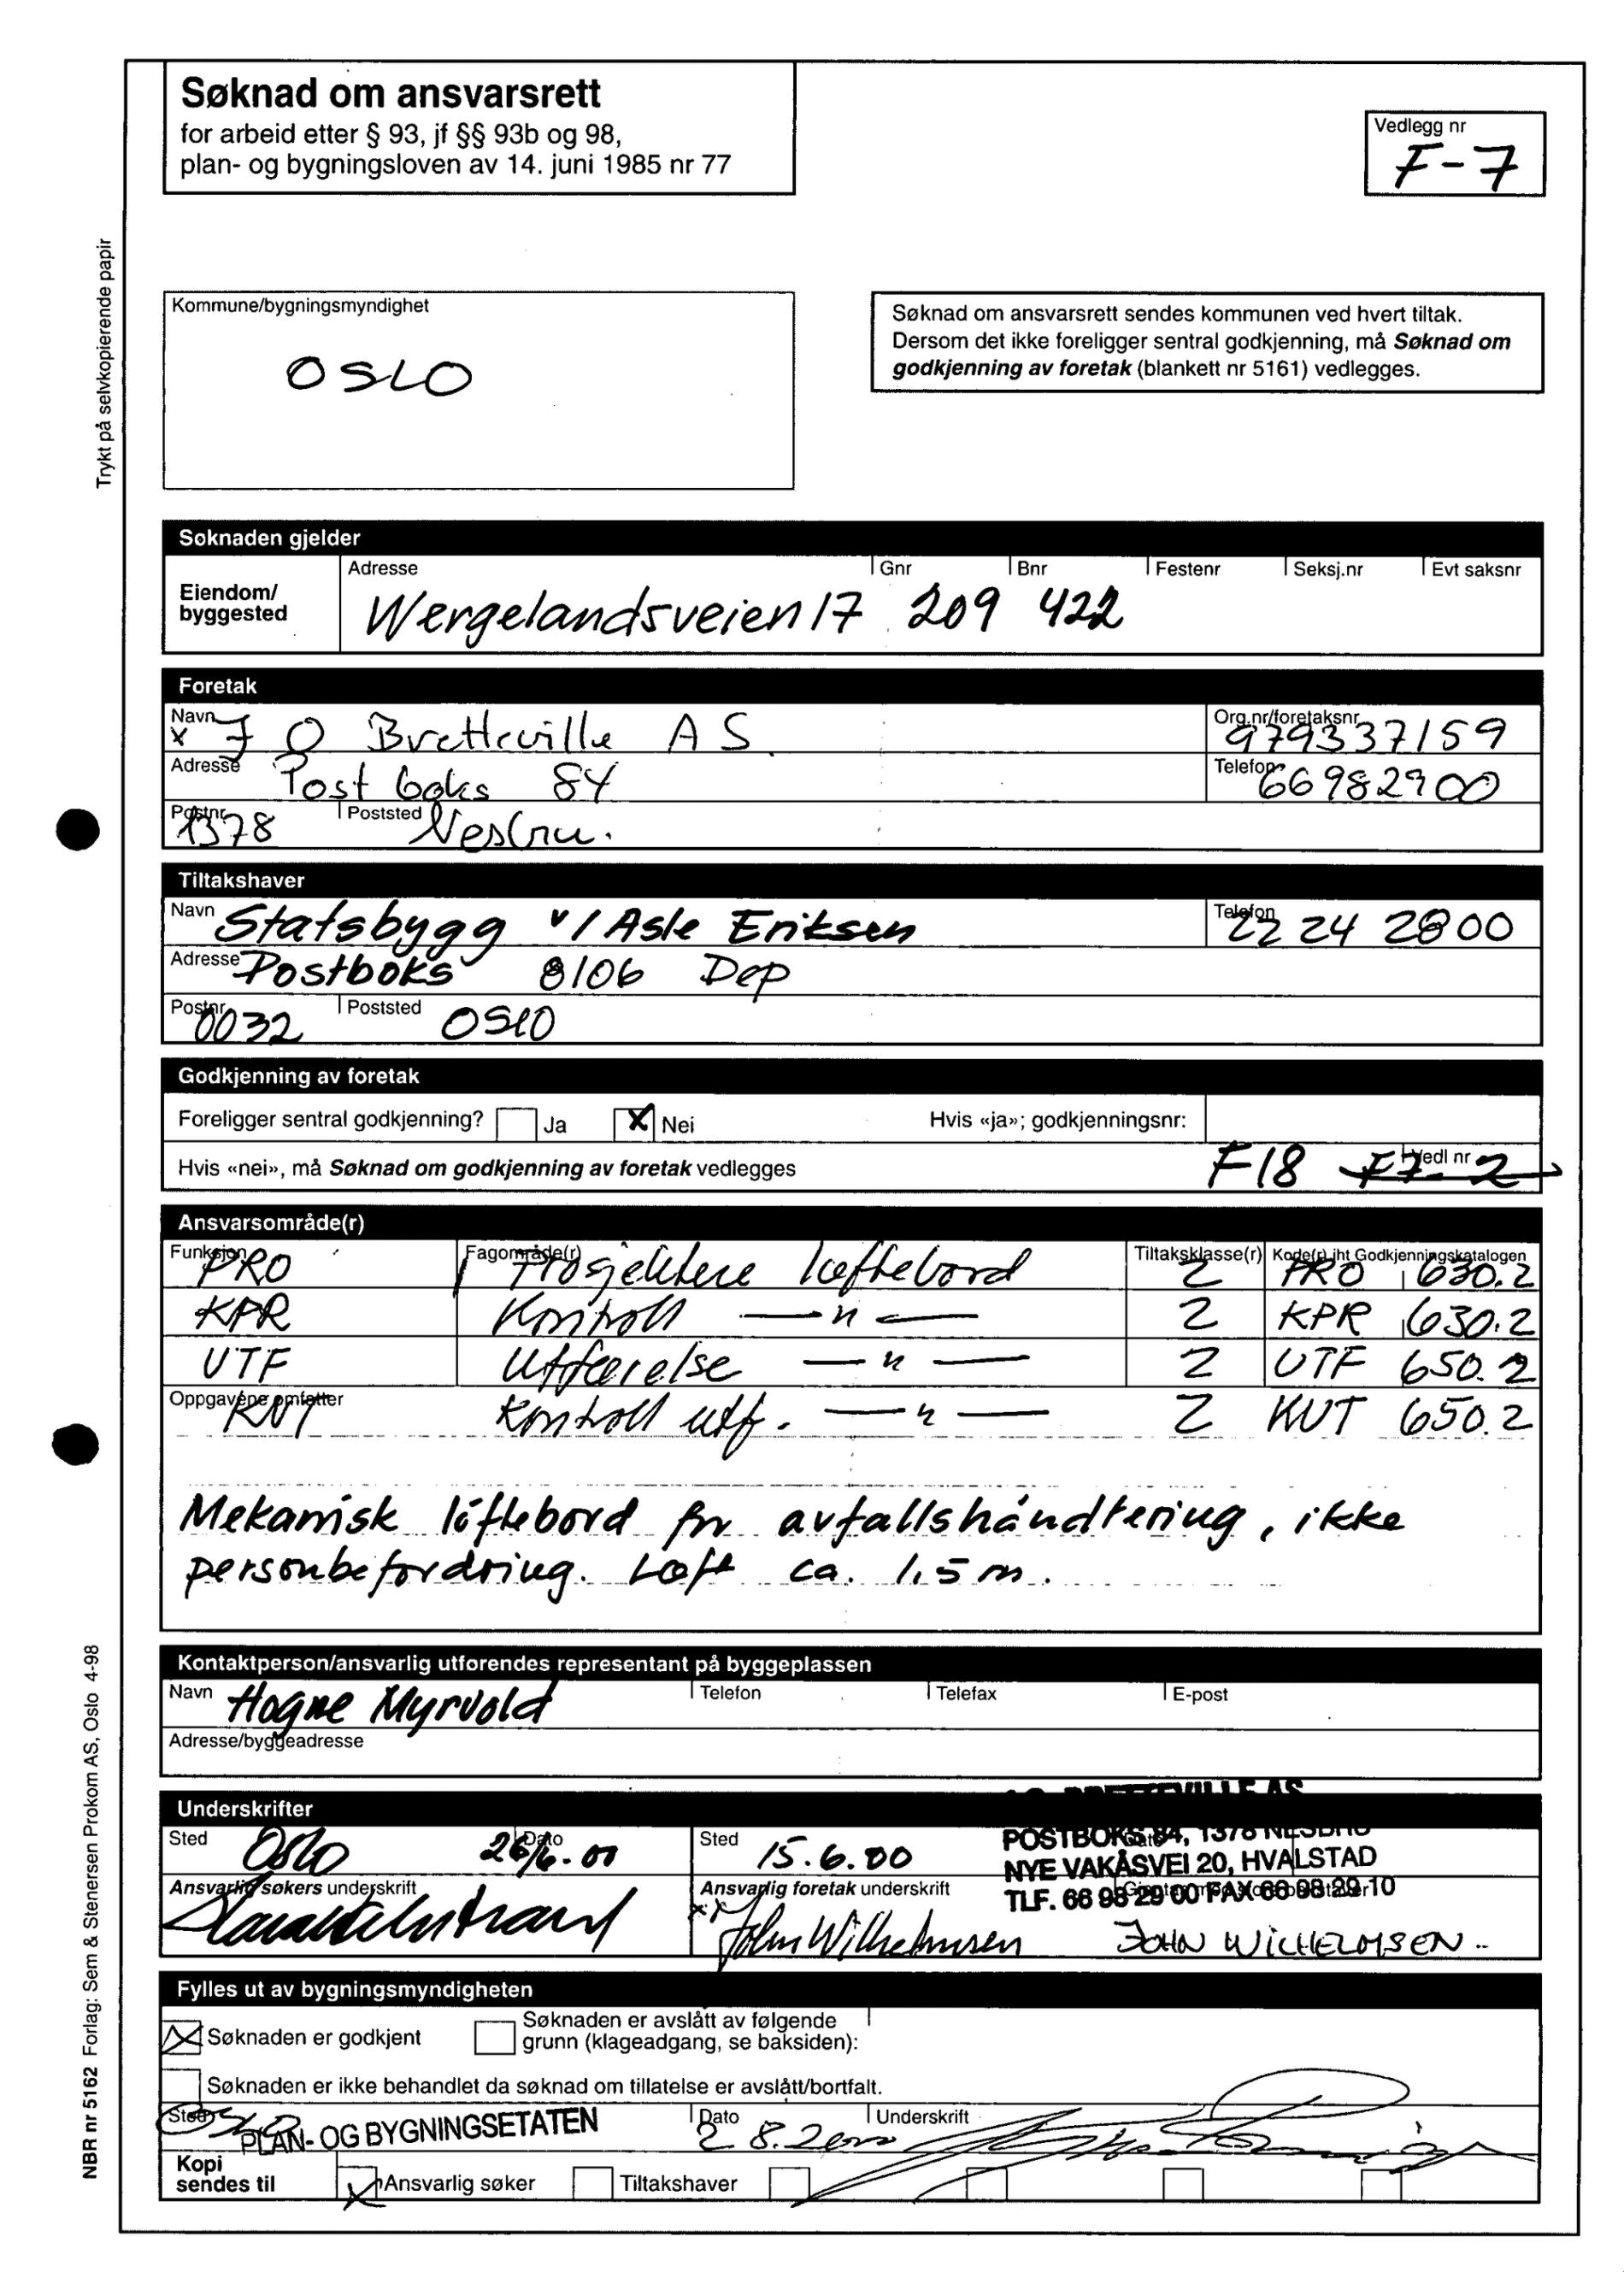 Søknad om ansvarsrett
for arbeid etter § 93, jf §§ 93b og 98,
plan- og bygningsloven av 14. juni 1985 nr 77
Vedlegg nr
F-7
Trykt på selvkopierende papir
Kommune/bygningsmyndighet
OSLO
Søknad om ansvarsrett sendes kommunen ved hvert tiltak.
Dersom det ikke foreligger sentral godkjenning, må Søknad om
godkjenning av foretak (blankett nr 5161) vedlegges.
Søknaden gjelder
Eiendom/
byggested
Adresse Gnr Bnr Festenr Seksj.nr Evt saksnr
Wergelandsveien 17 209 422
Foretak
Navn Org.nr/foretaksnr
x J O Bretteville AS 979337159
Adresse Telefon
Post boks 84 66982900
Postnr Poststed
1378 Nesbru.
Tiltakshaver
Navn Telefon
Statsbygg v/ Asle Eriksen 22 24 2800
Adresse Postboks 8106 Dep
Postnr Poststed
0032 OSLO
Godkjenning av foretak
Foreligger sentral godkjenning? Ja X Nei Hvis «ja»; godkjenningsnr:
Hvis «nei», må Søknad om godkjenning av foretak vedlegges F18 F7-2 Vedl nr
Ansvarsområde(r)
Funksjon Fagområde(r) Tiltaksklasse(r) Kode(r) iht Godkjenningskatalogen
PRO Prosjektere løftebord 2 PRO 630.2
KPR Kontroll — " — 2 KPR 630.2
UTF Utførelse — " — 2 UTF 650.2
Oppgavene omfatter
KUT Kontroll utf. — " — 2 KUT 650.2
Mekanisk löftebord for avfallshåndtering, ikke
personbefordring. Løft ca. 1,5 m.
Kontaktperson/ansvarlig utførendes representant på byggeplassen
Navn Telefon Telefax E-post
Hogne Myrvold
Adresse/byggeadresse
BRETTEVILLE AS
Underskrifter
Sted Dato Sted
Oslo 26/6-00 15.6.00
POSTBOKS 84, 1378 NESBRU
NYE VAKÅSVEI 20, HVALSTAD
TLF. 66 98 29 00 FAX 66 98 29 10
Ansvarlig søkers underskrift Ansvarlig foretak underskrift
xx John Wilhelmsen JOHN WILHELMSEN
Fylles ut av bygningsmyndigheten
Søknaden er godkjent
Søknaden er avslått av følgende
grunn (klageadgang, se baksiden):
Søknaden er ikke behandlet da søknad om tillatelse er avslått/bortfalt.
Sted Dato Underskrift
Oslo PLAN- OG BYGNINGSETATEN 2 8.2000
Kopi
sendes til
Ansvarlig søker Tiltakshaver
NBR nr 5162 Forlag: Sem & Stenersen Prokom AS, Oslo 4-98